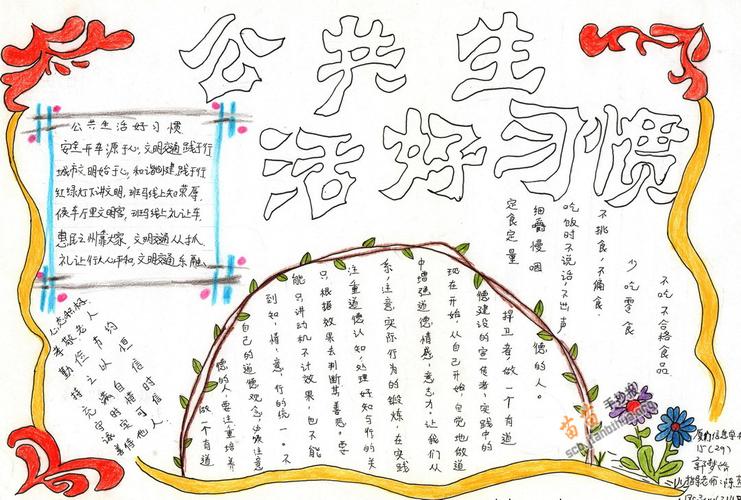 公共生
活好习惯
公共生活好习惯
安全开车源于心,文明交通践于行
城市文明始于心,和谐创建践于行
红绿灯下讲文明,班马线上知荣辱
候车厅里文明客,班马线上礼让车
惠民之州靠大家,文明交通从我
礼让行人人呼和,文明交通乐融
心态积极
孝敬老人
勤俭节约
持之以恒
充满自信
守时惜时
诚实可信
善待他人
不吃不合格食品
少吃零食
不挑食,不偏食
吃饭时不说话,不出声
细嚼慢咽
定食定量
德的人。
捍卫者,做一个有道
德建设的宣传者,实践中的
现在开始,从自己开始,自觉地做道
中增强道德情感,意志力,让我们从
系,注意实际行为的锻炼,在实践
注重道德认知处理好知与行的关
只根据效果去判断其善恶。要
能只讲动机不计效果,也不能
到知,情,意,行的统一。不
自己的道德观念,必须注意
德的人,要注重培养
做一个有道
苗苗手抄报
15(29)